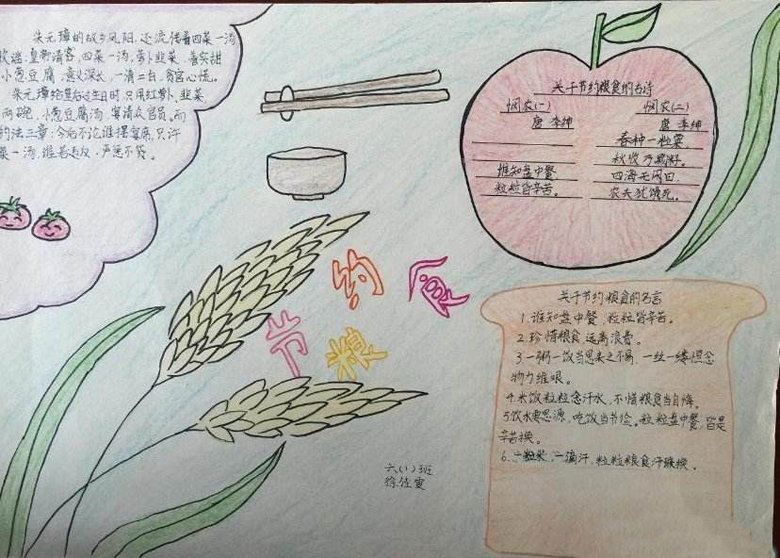 朱元璋的故乡凤阳,还流传着四菜一汤
歌谣:皇帝请客,四菜一汤,萝卜韭菜,着实甜
小葱豆腐,意义深长,一清二白,贪官心慌。
朱元璋给皇后过生日时,只用红萝卜、韭菜
两碗,小葱豆腐汤,宴请众官员。而
约法三章:今后不论谁摆宴席,只许
菜一汤,谁若违反,严惩不贷。
关于节约粮食的名诗
悯农(一)
唐 李绅
谁知盘中餐
粒粒皆辛苦。
悯农(二)
唐 李绅
春种一粒粟
秋收万颗籽。
四海无闲田
农夫犹饿死。
节约粮食
关于节约粮食的名言
1.谁知盘中餐,粒粒皆辛苦。
2.珍惜粮食,远离浪费。
3.一粥一饭当思来之不易,一丝一缕恒念
物力维艰。
4.米饭粒粒念汗水,不惜粮食当自悔。
5.饮水要思源,吃饭当节俭。粒粒盘中餐,皆是
辛苦换。
6.一粒米,一滴汗,粒粒粮食汗珠换。
六(1)班